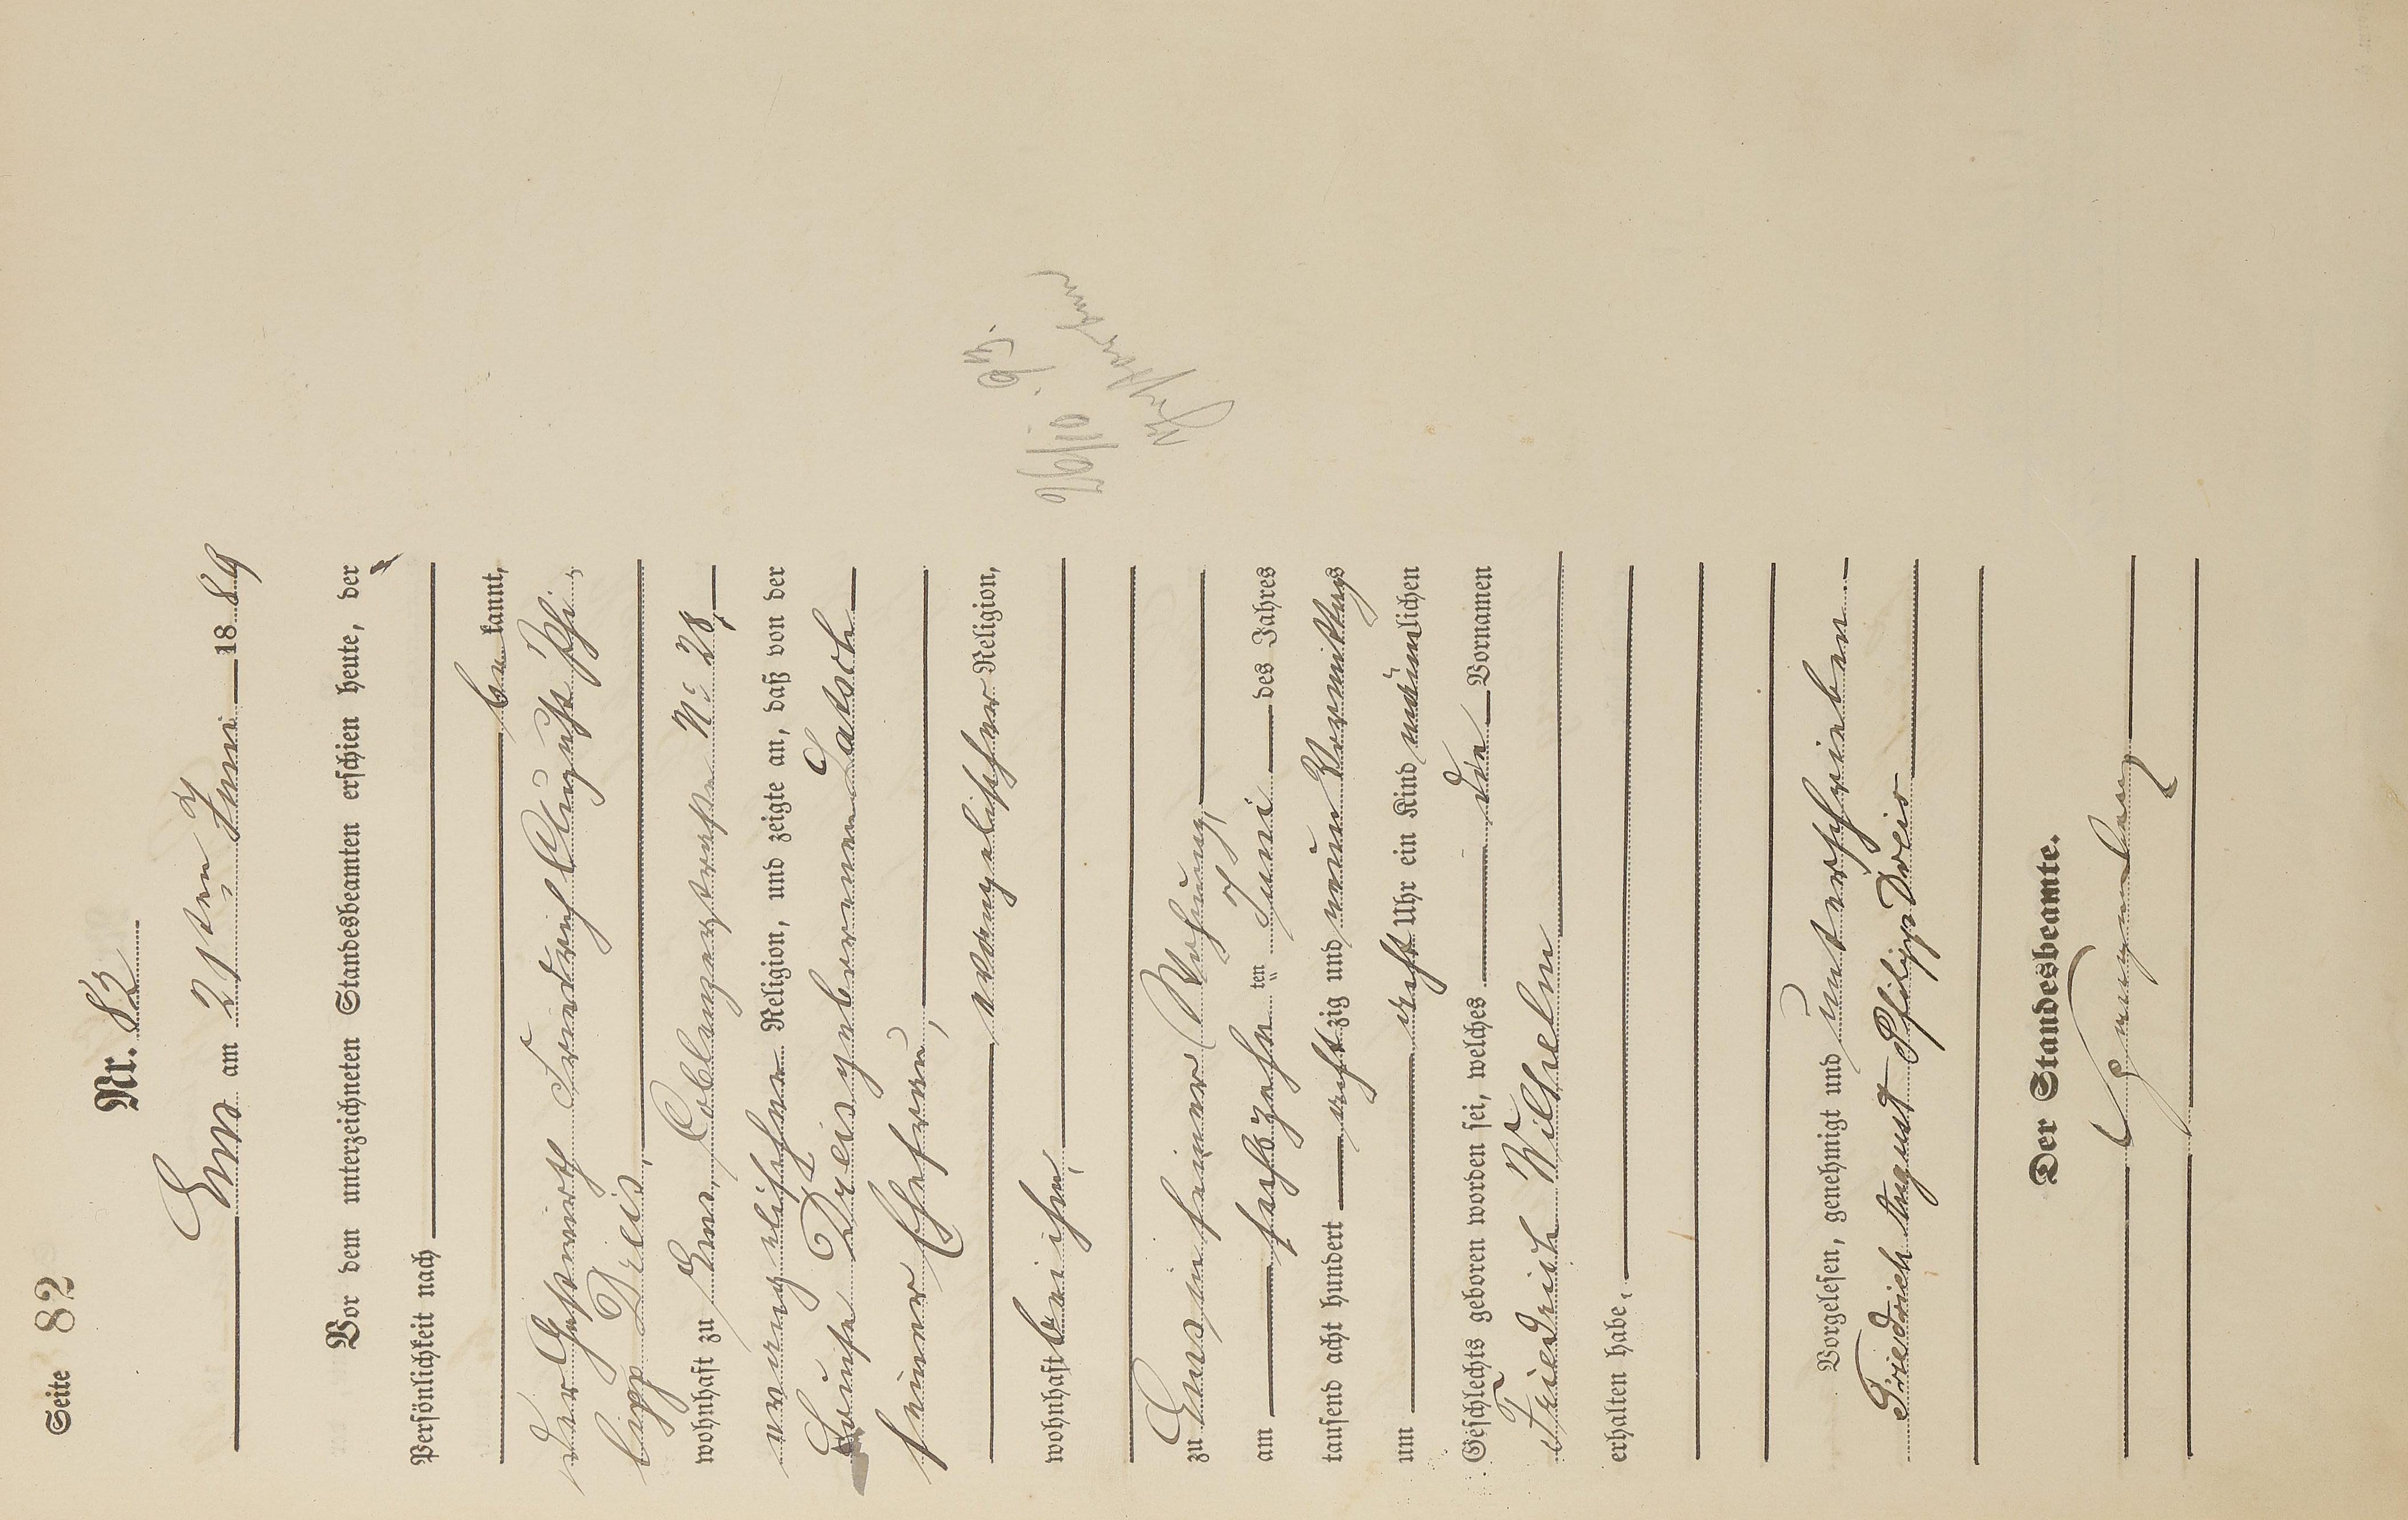 Seite 82
Nr. 82
Ems am 21ten Juni 1889
Vor dem unterzeichneten Standesbeamten erschien heute, der
Persönlichkeit nach
be kannt,
der Gastwirth Friedrich August Phi-
lipp Dreis,
wohnhaft zu Ems, Coblenzerstraße No 28,
evangelischer Religion, und zeigte an, daß von der
Louise Dreis geborenen Latsch
seiner Ehefrau,
evangelischer Religion,
wohnhaft bei ihm,
zu Ems in seiner Wohnung,
am sechszehn ten Juni des Jahres
tausend acht hundert acht zig und neun Vormittags
um acht Uhr ein Kind männlichen
Geschlechts geboren worden sei, welches die Vornamen
Friedrich Wilhelm
erhalten habe,
Vorgelesen, genehmigt und unterschrieben
Friedrich August Philipp Dreis
Der Standesbeamte.
26/10. 93.